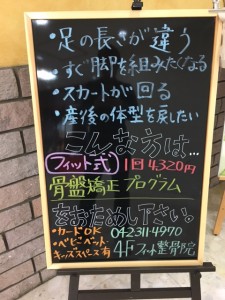 ・足の長さが違う
・すぐ脚を組みたくなる
・スカートが回る
・産後の体型を戻したい
こんな方は…
フィット式 1回4,320円
骨盤矯正プログラム
をおためし下さい。
・カードOK 042 311 4970
・ベビーベット・
キッズスペース有 4F フィット整骨院